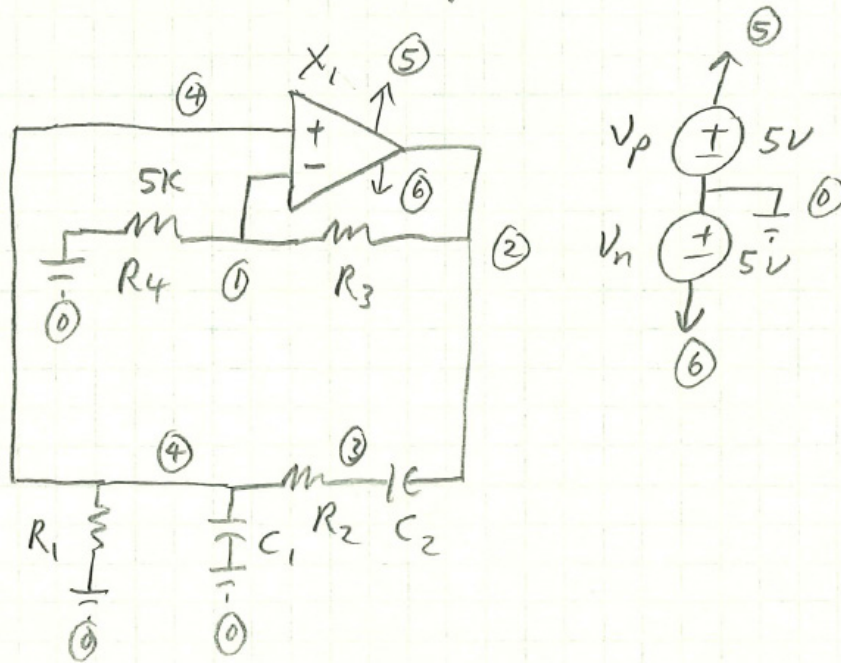 X₁ ⑤
④
+
−
⑥
5K
R₄ ① R₃ ②
⓪
④ ③
R₁ C₁ R₂ C₂
⓪ ⓪
⑤
Vp + − 5V
⓪
Vn + − 5V
⑥